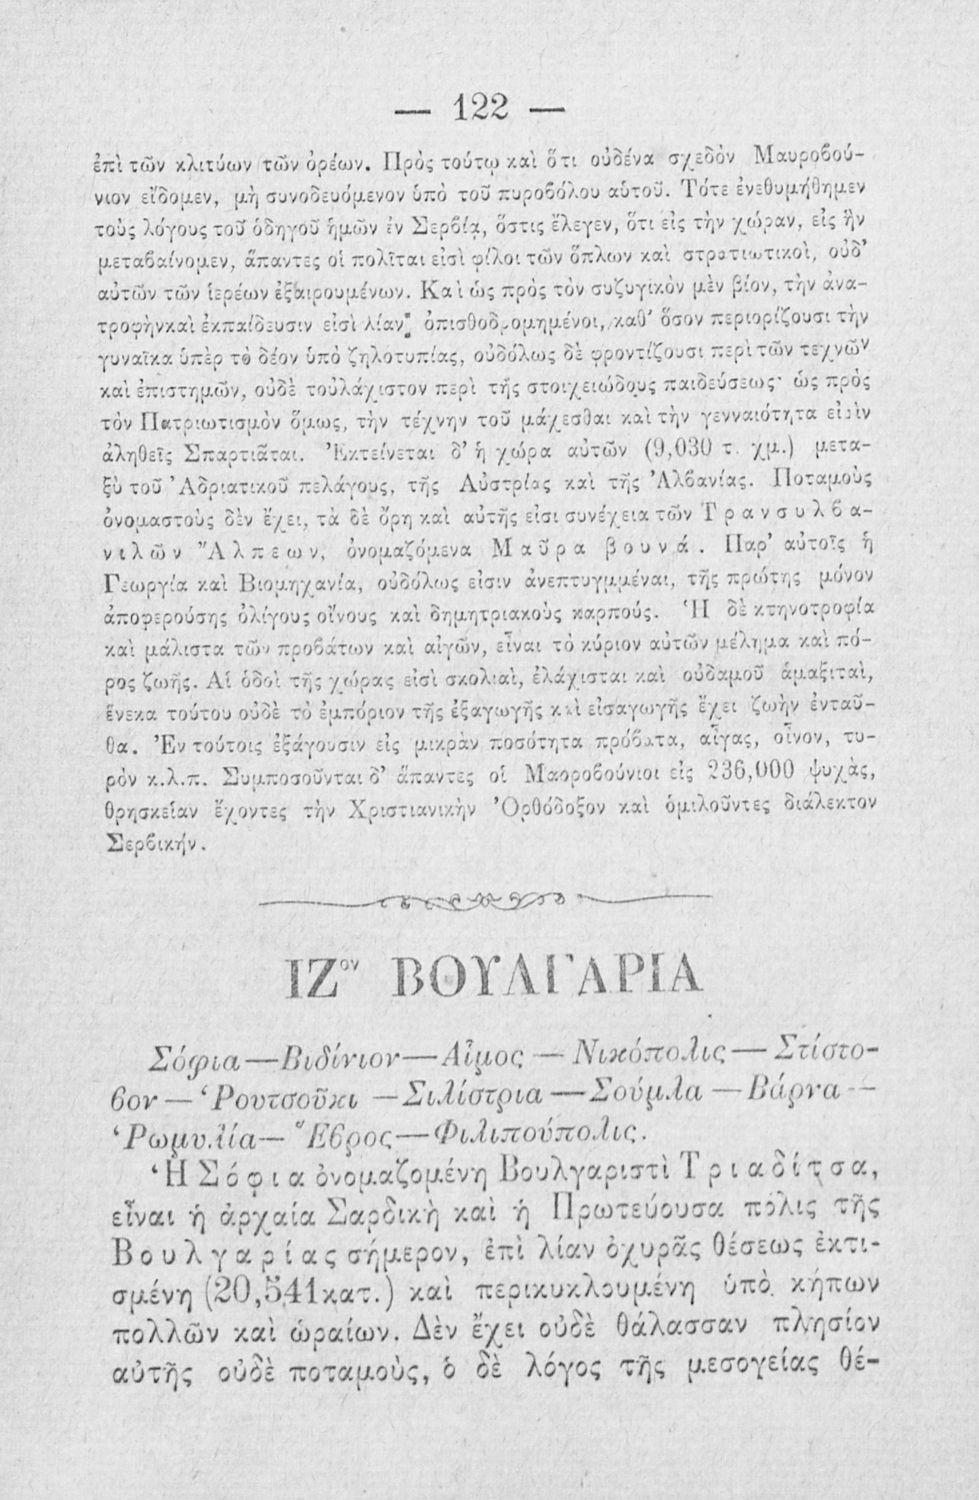 — 122 —
ἐπὶ τῶν κλιτύων τῶν ὀρέων. Πρὸς τούτῳ καὶ ὅτι οὐδένα σχεδὸν Μαυροβού-
νιον εἴδομεν, μὴ συνοδευόμενον ὑπὸ τοῦ πυροβόλου αὑτοῦ. Τότε ἐνεθυμήθημεν
τοὺς λόγους τοῦ ὁδηγοῦ ἡμῶν ἐν Σερβίᾳ, ὅστις ἔλεγεν, ὅτι εἰς τὴν χώραν, εἰς ἣν
μεταβαίνομεν, ἅπαντες οἱ πολῖται εἰσὶ φίλοι τῶν ὅπλων καὶ στρατιωτικοὶ, οὐδ’
αὐτῶν τῶν ἱερέων ἐξαιρουμένων. Καὶ ὡς πρὸς τὸν συζυγικὸν μὲν βίον, τὴν ἀνα-
τροφὴνκαὶ ἐκπαίδευσιν εἰσὶ λίαν ὀπισθοδρομημένοι, καθ’ ὅσον περιορίζουσι τὴν
γυναῖκα ὑπὲρ τὸ δέον ὑπὸ ζηλοτυπίας, οὐδόλως δὲ φροντίζουσι περὶ τῶν τεχνῶν
καὶ ἐπιστημῶν, οὐδὲ τοὐλάχιστον περὶ τῆς στοιχειώδους παιδεύσεως· ὡς πρὸς
τὸν Πατριωτισμὸν ὅμως, τὴν τέχνην τοῦ μάχεσθαι καὶ τὴν γενναιότητα εἰσὶν
ἀληθεῖς Σπαρτιᾶται. Ἐκτείνεται δ’ ἡ χώρα αὐτῶν (9,030 τ. χμ.) μετα-
ξὺ τοῦ Ἀδριατικοῦ πελάγους, τῆς Αὐστρίας καὶ τῆς Ἀλβανίας. Ποταμοὺς
ὀνομαστοὺς δὲν ἔχει, τὰ δὲ ὄρη καὶ αὐτῆς εἰσι συνέχεια τῶν Τρανσυλβα-
νιλῶν Ἄλπεων, ὀνομαζόμενα Μαῦρα βουνά. Παρ’ αὐτοῖς ἡ
Γεωργία καὶ Βιομηχανία, οὐδόλως εἰσιν ἀνεπτυγμμέναι, τῆς πρώτης μόνον
ἀποφερούσης ὀλίγους οἴνους καὶ δημητριακοὺς καρπούς. Ἡ δὲ κτηνοτροφία
καὶ μάλιστα τῶν προβάτων καὶ αἰγῶν, εἶναι τὸ κύριον αὐτῶν μέλημα καὶ πό-
ρος ζωῆς. Αἱ ὁδοὶ τῆς χώρας εἰσὶ σκολιαὶ, ἐλάχισται καὶ οὐδαμοῦ ἁμαξιταὶ,
ἕνεκα τούτου οὐδὲ τὸ ἐμπόριον τῆς ἐξαγωγῆς καὶ εἰσαγωγῆς ἔχει ζωὴν ἐνταῦ-
θα. Ἐν τούτοις ἐξάγουσιν εἰς μικρὰν ποσότητα πρόβατα, αἶγας, οἶνον, τυ-
ρὸν κ.λ.π. Συμποσοῦνται δ’ ἅπαντες οἱ Μαοροβούνιοι εἰς 236,000 ψυχὰς,
θρησκείαν ἔχοντες τὴν Χριστιανικὴν Ὀρθόδοξον καὶ ὁμιλοῦντες διάλεκτον
Σερβικήν.
ΙΖον ΒΟΥΛΓΑΡΙΑ
Σόφια—Βιδίνιον—Αἷμος — Νικόπολις — Στίστο-
βον — Ῥουτσοῦκι — Σιλίστρια — Σούμλα — Βάρνα —
Ῥωμυλία— Ἕβρος—Φιλιπούπολις.
Ἡ Σόφια ὀνομαζομένη Βουλγαριστὶ Τριαδίτσα,
εἶναι ἡ ἀρχαία Σαρδικὴ καὶ ἡ Πρωτεύουσα πόλις τῆς
Βουλγαρίας σήμερον, ἐπὶ λίαν ὀχυρᾶς θέσεως ἐκτι-
σμένη (20,541κατ.) καὶ περικυκλουμένη ὑπὸ κήπων
πολλῶν καὶ ὡραίων. Δὲν ἔχει οὐδὲ θάλασσαν πλησίον
αὐτῆς οὐδὲ ποταμοὺς, ὁ δὲ λόγος τῆς μεσογείας θέ-